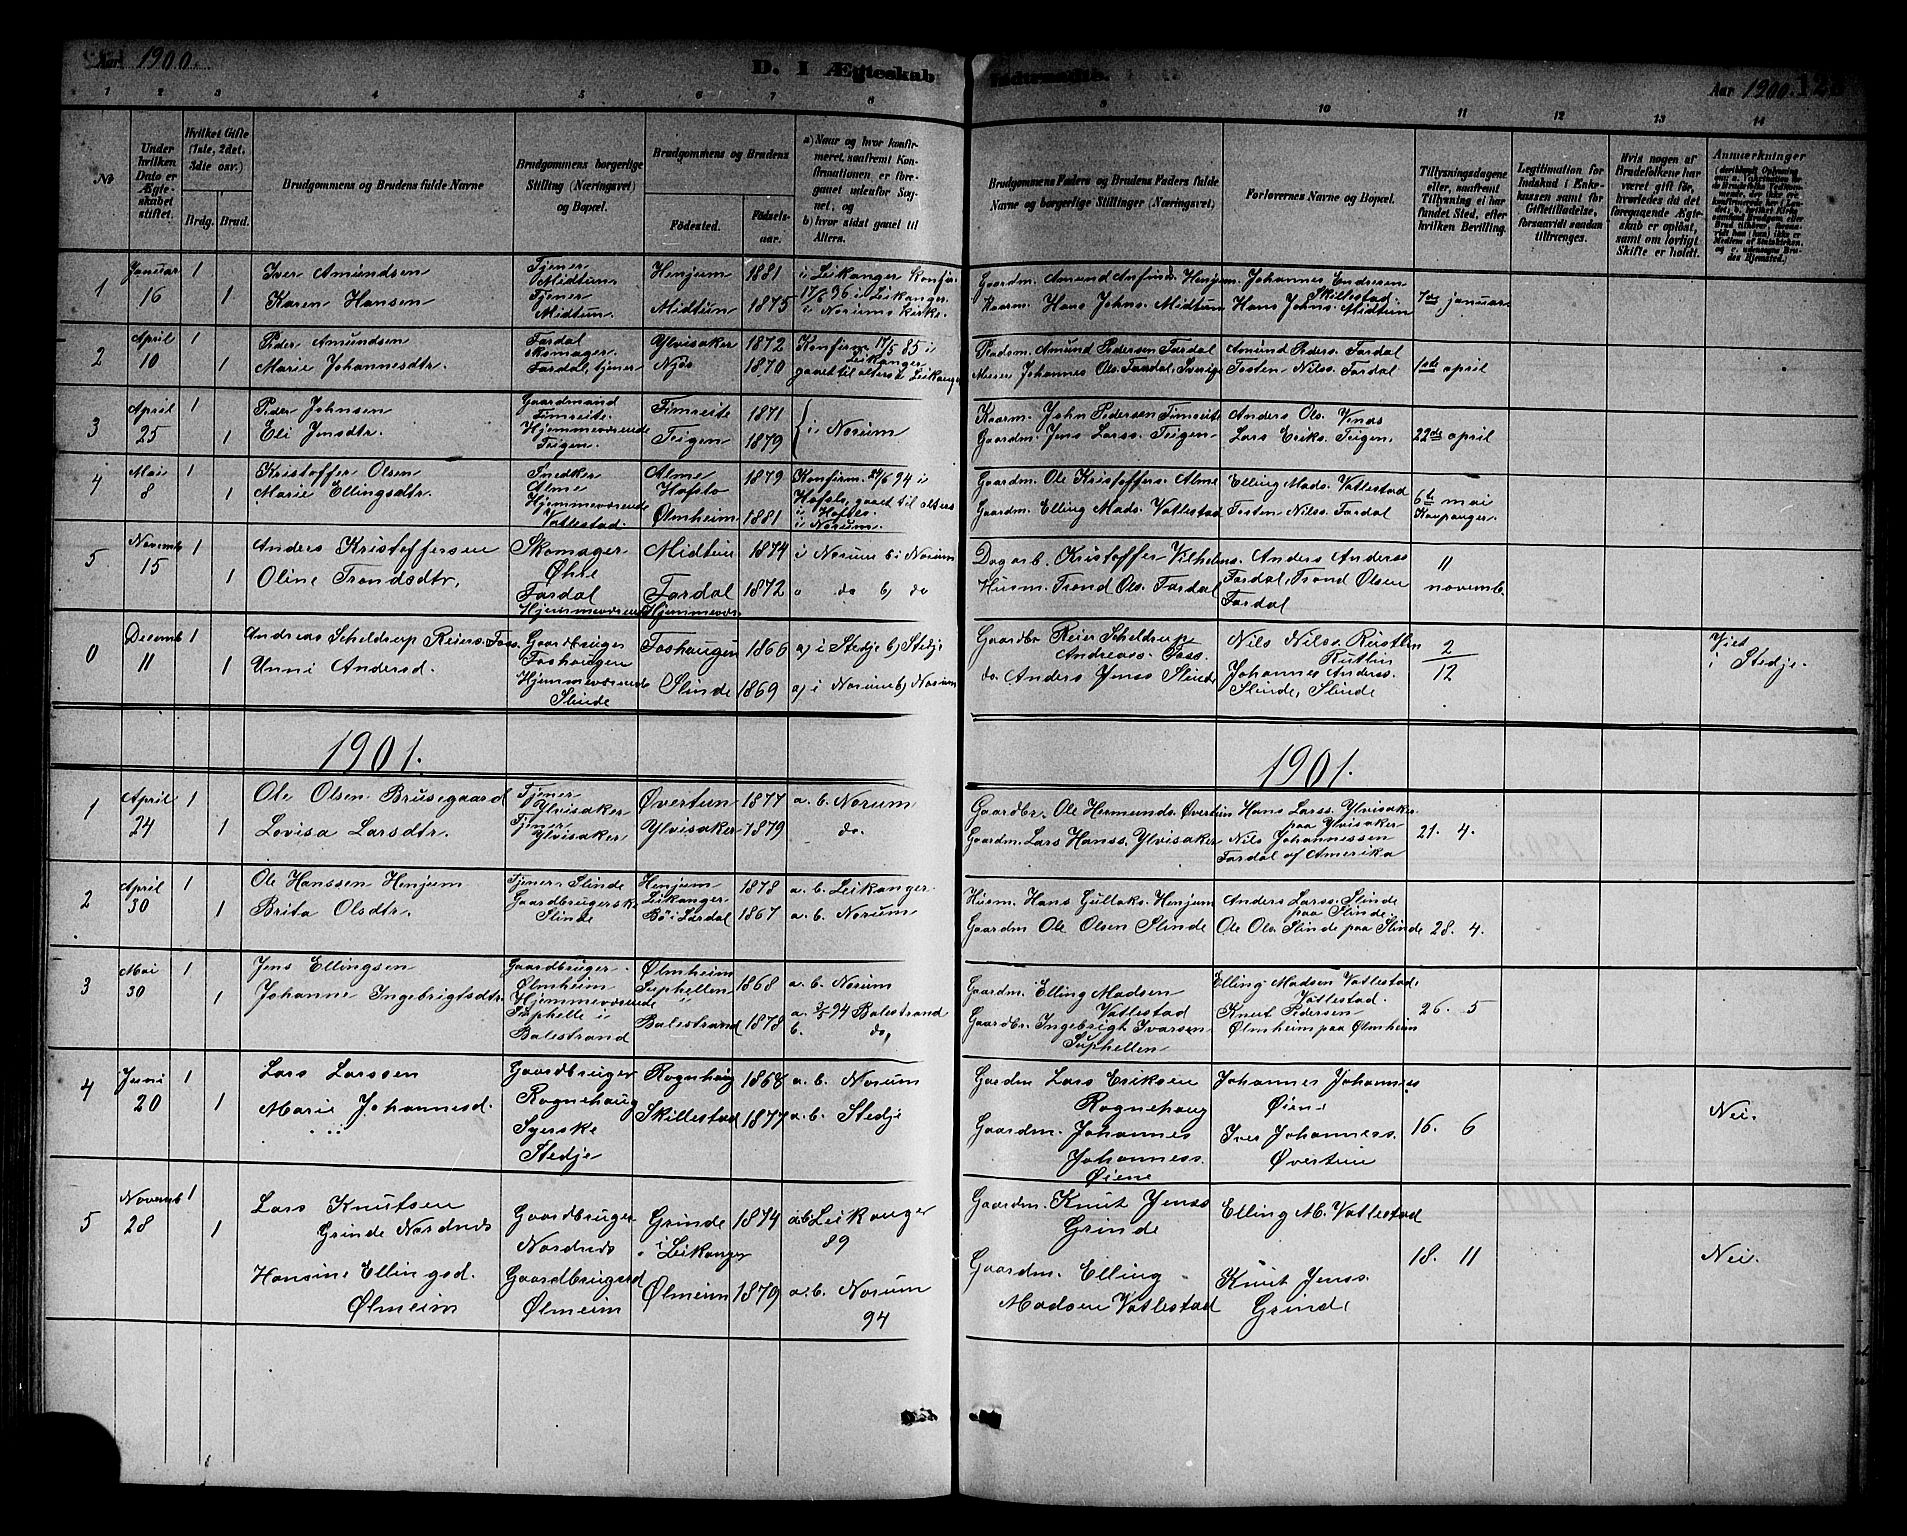 Aar 1900. D. I Ægteskab indtraadte. Aar 1900. 12
1 2 3 4 5 6 7 8 9 10 11 12 13 14
№ Under hvilken Dato er Ægteskabet stiftet. Hvilket Gifte (1ste, 2det, 3die osv.) Brdg. Brud. Brudgommens og Brudens fulde Navne Brudgommens borgerlige Stilling (Næringsvei) og Bopæl. Brudgommens og Brudens Fødested. Fødselsaar. a) Naar og hvor konfirmeret, saafremt Konfirmationen er foregaaet udenfor Sognet, og b) hvor sidst gaaet til Alters. Brudgommens Faders og Brudens Faders fulde Navne og borgerlige Stillinger (Næringsvei) Forlovernes Navne og Bopæl. Tillysningsdagene eller, saafremt Tillysning ei har fundet Sted, efter hvilken Bevilling. Legitimation for Indskud i Enkekassen samt for Giftetilladelse, forsaavidt saadan tiltrænges. Hvis nogen af Brudefolkene har været gift før, hvorledes da det foregaaende Ægteskab er opløst, samt om lovligt Skifte er holdt. Anmærkninger
1 Januar 16 1 Iver Amundsen Tjener Midtun Henjum 1881 i Leikanger konfir. 17/5 96 i Leikanger Gaardm. Amund Anfinds. Henjum Johannes Endresen Skillestad. 7de januar
1 Karen Hansen Tjener Midtum. Midtum 1875 i Norums kirke. Kaarm. Hans Johns. Midtum Hans Johns. Midtum
2 April 10 1 Peder Amundsen Fardal skomager. Ylvisaker 1872 Konfirm. 17/5 85 i Leikanger Pladsm. Amund Pedersen Fardal Amund Peders. Fardal 1ste april
1 Marie Johannesdtr. Fardal, tjener Njøs 1870 gaaet til alters i Leikanger Johannes Ols. Fardal, Sverige Tosten Nils. Fardal
3 April 25 1 Peder Johnsen Gaardmand Fimreite. Fimreite 1871 i Norum Kaarm. John Pedersen Fimreite Anders Ols. Vinæs 22de april
1 Eli Jensdtr. Hjemmeværende Teigen. Teigen 1879 Gaardm. Jens Larss. Teigen Lars Eriks. Teigen
4 Mai 8 1 Kristoffer Olsen Snedker Alme Alme Hafslo 1879 Konfirm. 24/6 94 i Hafslo, gaaet til alters i Hafslo Gaardm. Ole Kristoffers. Alme Elling Mads. Vatlestad 6te mai Kaupanger.
1 Marie Ellingsdtr. Hjemmeværende Vatlestad. Ølmheim 1881 i Norum. Gaardm. Elling Mads. Vatlestad Tosten Nilss. Fardal
5 Novemb 15 1 Anders Kristoffersen Skomager Øhre Midtun 1874 i Norum b) i Norum Dagarb. Kristoffer Vilhelms. Anders Anderss Fardal, Trond Olsen Fardal 11 novemb.
1 Oline Trondsdtr. Fardal Hjemmeværende Fardal Hjemmevær. 1872 do b) do Husm. Trond Ols. Fardal
0 Decemb 11 1 Andreas Scheldrup Reiers. Foss Gaardbruger Foshaugen Foshaugen 1866 a) i Stedje b) Stedje Gaardbr. Reier Scheldrup Andreas. Foss. Nils Nilss. Rustlin Rutlin 2/12 Viet i Stedje.
1 Unni Andersd. Hjemmeværende Slinde Slinde 1869 a) i Norum b) Norum do. Anders Jenss. Slinde Johannes Anderss. Slinde, Slinde
1901. 1901.
1 April 24 1 Ole Olsen Brusegaard Tjener Ylvisaker Øvertun 1877 a. b. Norum Gaardbr. Ole Hermunds. Øvertun Hans Larss. Ylvisaker paa Ylvisaker 21. 4.
1 Lovisa Larsdtr. Tjener Ylvisaker Ylvisaker 1879 do. Gaardm. Lars Hanss. Ylvisaker Nils Johannessen Fardal af Amerika
2 April 30 1 Ole Hanssen Henjum Tjener Slinde Henjum Leikanger 1878 a. b. Leikanger Husm. Hans Gullaks. Henjum Anders Larss. Slinde paa Slinde. 28. 4.
1 Brita Olsdtr. Gaardbrugerske Slinde Bø i Lærdal 1867 a. b. Norum Gaardm Ole Olsen Slinde Ole Ols. Slinde paa Slinde
3 Mai 30 1 Jens Ellingsen Gaardbruger Ølmheim Ølmheim 1868 a. b. Norum Gaardm. Elling Madsen Vatlestad Elling Madsen Vatlestad, Vatlestad. 26. 5
1 Johanne Ingebrigtsdtr Hjemmeværende Suphelle i Balestrand Suphellen i Balestrand 1878 a. 94 Balestrand b. do, Gaardbr. Ingebrigt Ivarsen Suphellen Knut Pedersen Ølmheim paa Ølmheim
4 Juni 20 1 Lars Larssen Gaardbruger Rognehaug Rognhaug 1868 a. b. Norum Gaardm Lars Eriksen Rognehaug Johannes Johannes. Øiene 16. 6 Nei.
1 Marie Johannesd. Syerske Stedje Skillestad 1877 a. b. Stedje Gaardm. Johannes Johanness. Øiene Iver Johanness. Øvertun
5 Novemb 28 1 Lars Knutsen Grinde Nordnæs Gaardbruger Nordnæs Grinde i Leikanger 1874 a b Leikanger 89 Gaardm. Knut Jenss Grinde Elling M. Vatlestad 18. 11 Nei.
1 Hansine Ellingsd. Ølmeim Gaardbrugerd Ølmeim Ølmeim 1879 a. b. Norum 94 Gaardm. Elling Madsen Vatlestad Knut Jenss. Grinde